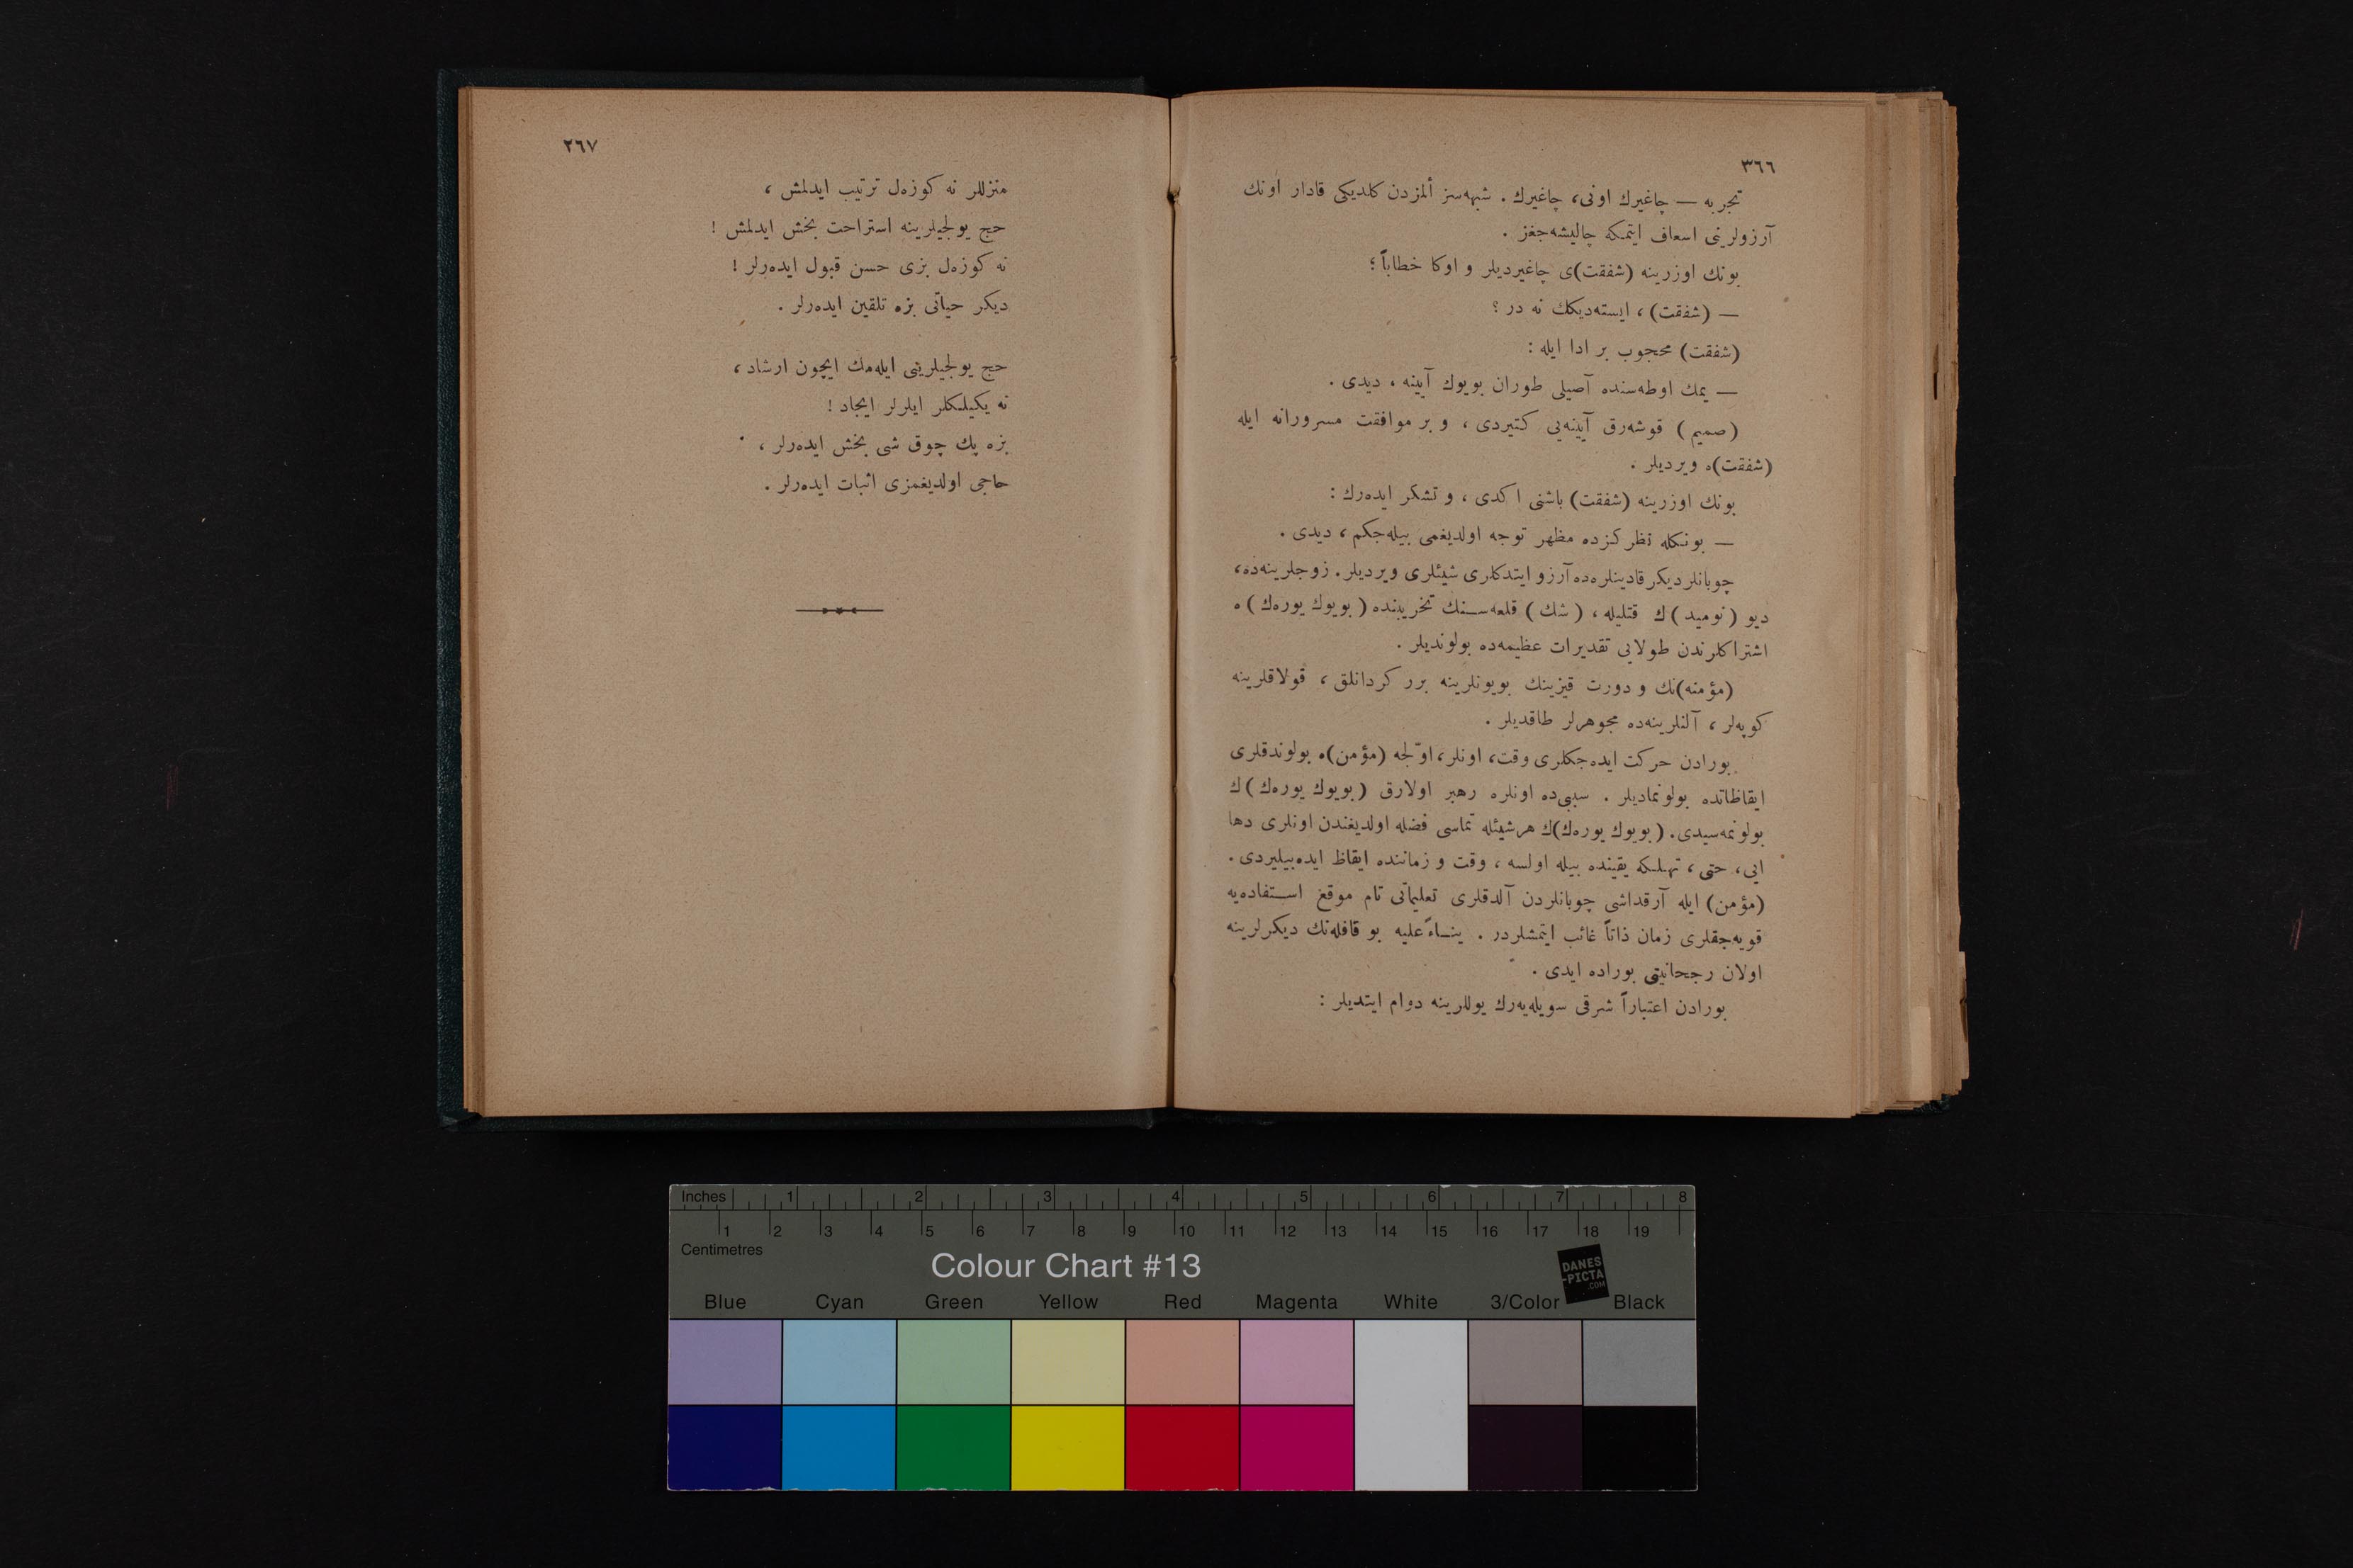 ٣٦٦
تجربه — چاغیرك اونی، چاغیرك . شبهه‌سز ألمزدن كلدیكی قادار اونك
آرزولرینی اسعاف ایتمكه چالیشه‌جغز .
بونك اوزرینه (شفقت)ی چاغیردیلر و اوكا خطاباً ؛
— (شفقت) ، ایسته‌دیكك نه در ؟
(شفقت) محجوب بر ادا ایله :
— یمك اوطه‌سنده آصیلی طوران بویوك آیینه ، دیدی .
(صمیم) قوشه‌رق آیینه‌یی كتیردی ، و بر موافقت مسرورانه ایله
(شفقت)ه ویردیلر .
بونك اوزرینه (شفقت) باشنی اكدی ، و تشكر ایده‌رك :
— بونكله نظركزده مظهر توجه اولدیغمی بیله‌جكم ، دیدی .
چوبانلر دیكر قادینلره‌ده آرزو ایتدكلری شیئلری ویردیلر . زوجلرینه‌ده،
دیو (نومید)ك قتلیله ، (شك) قلعه‌سنك تخریبنده (بویوك یوره‌ك)ه
اشتراكلرندن طولایی تقدیرات عظیمه‌ده بولوندیلر .
(مؤمنه)نك و دورت قیزینك بویونلرینه برر كردانلق ، قولاقلرینه
كوپه‌لر ، آلنلرینه‌ده مجوهرلر طاقدیلر .
بورادن حركت ایده‌جكلری وقت، اونلر، اوّلجه (مؤمن)ه بولوندقلری
ایقاظاتده بولونمادیلر . سببی‌ده اونلره رهبر اولارق (بویوك یوره‌ك)ك
بولونمه‌سیدی. (بویوك یوره‌ك)ك هرشیئله تماسی فضله اولدیغندن اونلری دها
ایی، حتی، تهلكه یقینده بیله اولسه ، وقت و زماننده ایقاظ ایده‌بیلیردی .
(مؤمن) ایله آرقداشی چوبانلردن آلدقلری تعلیماتی تام موقع استفاده‌یه
قویه‌جقلری زمان ذاتاً غائب ایتمشلردر . بناءً علیه بو قافله‌نك دیكرلرینه
اولان رجحانیتی بوراده ایدی .
بورادن اعتباراً شرقی سویله‌یه‌رك یوللرینه دوام ایتدیلر :
٢٦٧
منزللر نه كوزه‌ل ترتیب ایدلمش ،
حج یولجیلرینه استراحت بخش ایدلمش !
نه كوزه‌ل بزی حسن قبول ایده‌رلر !
دیكر حیاتی بزه تلقین ایده‌رلر .
حج یولجیلرینی ایله‌مك ایچون ارشاد ،
نه یكیلكلر ایلرلر ایجاد !
بزه پك چوق شی بخش ایده‌رلر ،
حاجی اولدیغمزی اثبات ایده‌رلر .
Inches 1 2 3 4 5 6 7 8
1 2 3 4 5 6 7 8 9 10 11 12 13 14 15 16 17 18 19
Centimetres
Colour Chart #13
DANES
-PICTA
.COM
Blue Cyan Green Yellow Red Magenta White 3/Color Black